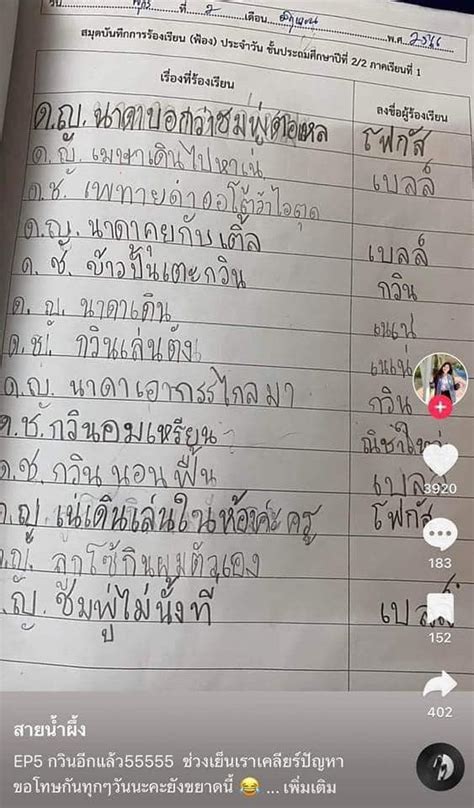 วัน พุธ ที่ 2 เดือน มิถุนายน พ.ศ. 2566
สมุดบันทึกการร้องเรียน (ฟ้อง) ประจำวัน ชั้นประถมศึกษาปีที่ 2/2 ภาคเรียนที่ 1
เรื่องที่ร้องเรียน ลงชื่อผู้ร้องเรียน
ด.ญ. นาดาบอกว่าชมพู่ตอแหล โฟกัส
ด.ญ. เมษาเดินไปหาเน่ เบลล์
ด.ช. เพทายด่าออโต้ว่าไอตุด
ด.ญ. นาดาคุยกับเติ้ล เบลล์
ด.ช. ข้าวปั้นเตะกวิน กวิน
ด.ญ. นาดาเดิน เนเน่
ด.ช. กวินเล่นตัง เนเน่
ด.ญ. นาดาเอากรรไกลมา กวิน
ด.ช. กวินอมเหรียญ ณิชาใหญ่
ด.ช. กวินนอนพื้น เบลล์
ด.ญ. เน่เดินเล่นในห้องค่ะครู โฟกัส
ญ. ลูกโซ่กินผมตัวเอง
ญ. ชมพู่ไม่นั่งที่ เบลล์
3920
183
152
402
สายน้ำผึ้ง
EP5 กวินอีกแล้ว55555 ช่วงเย็นเราเคลียร์ปัญหา
ขอโทษกันทุกๆวันนะคะยังขยาดนี้ 😂 ... เพิ่มเติม